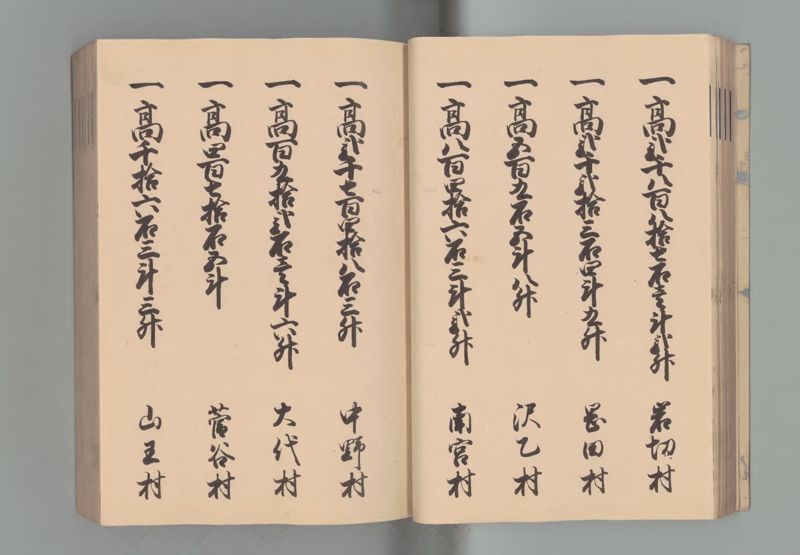 一高弐千八百八拾七石壱斗弐升 岩切村
一高弐千弐拾三石四斗九升 岡田村
一高五百九石五斗八升 沢乙村
一高八百四拾六石三斗弐升 南宮村
一高弐千七百四拾八石三升 中野村
一高百九拾弐石壱斗六升 大代村
一高四百七拾石五斗 菅谷村
一高千拾六石三斗三升 山王村